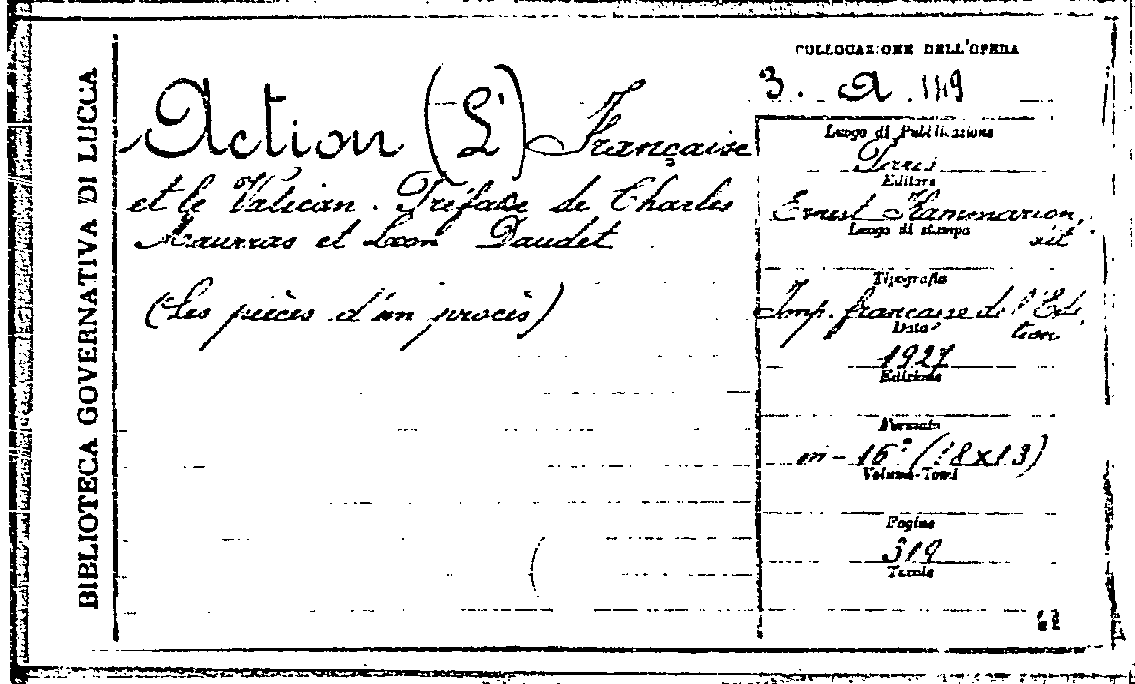 BIBLIOTECA GOVERNATIVA DI LUCCA
COLLOCAZIONE DELL'OPERA
3. A. 119
Action (L') Française
et le Vatican. Préface de Charles
Maurras et Léon Daudet
(Les pièces d'un procès)
Luogo di Pubblicazione
Paris
Editore
Ernest Flammarion,
Luogo di stampa
Tipografia
Imp. française de l'Edi
tion
Data
1927
Edizione
Formato
in-16° (18x13)
Volume-Tomi
Pagine
319
Tavole